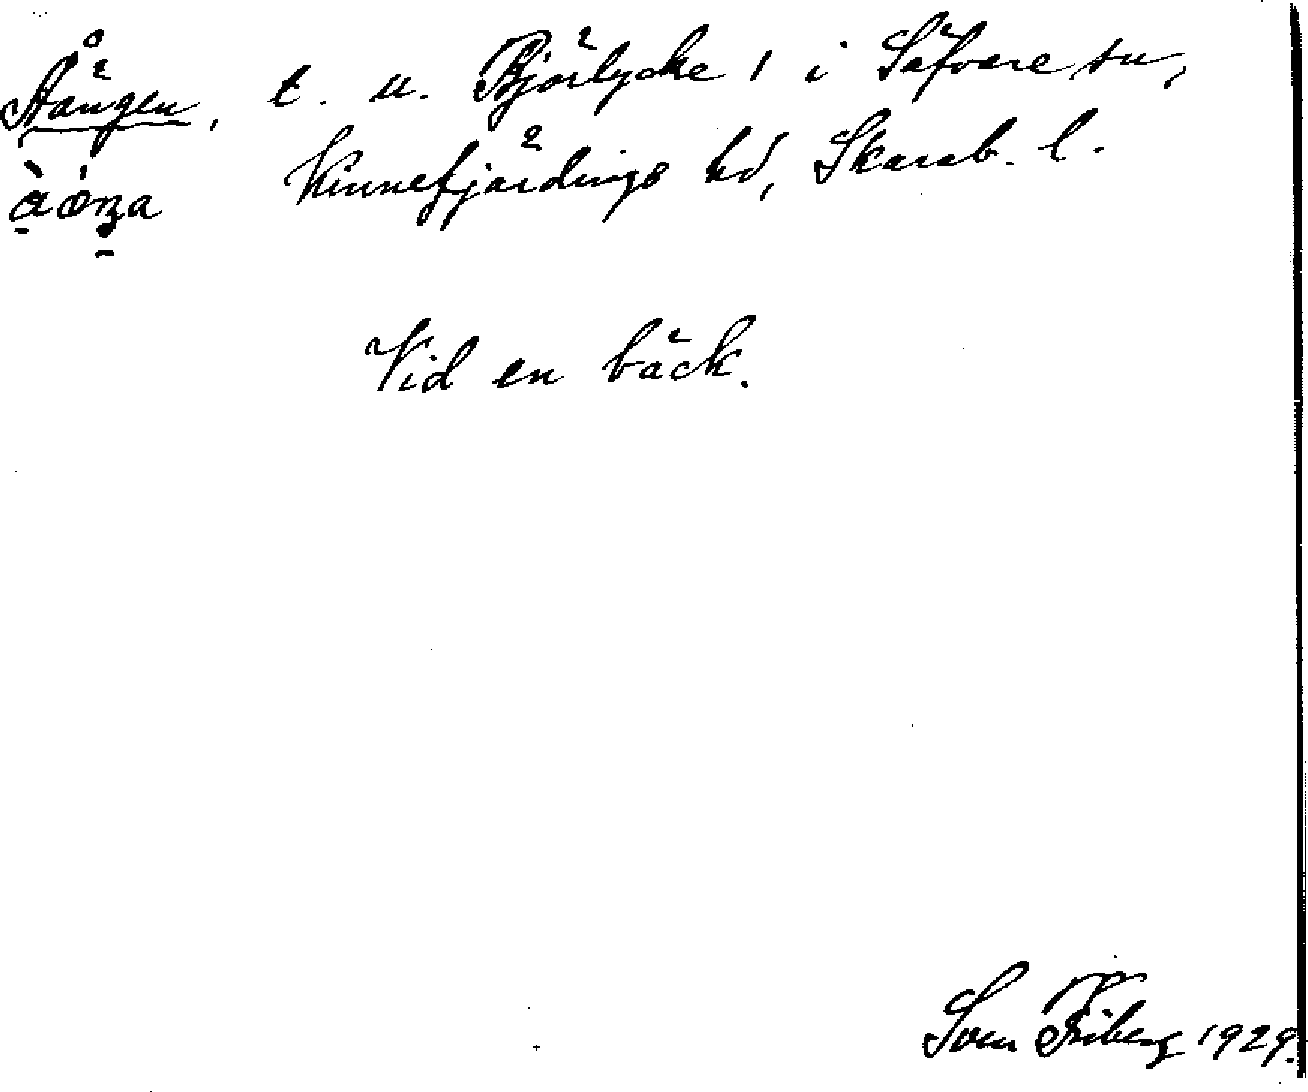 Åängen, t. u. Björlycke 1 i Säfvare sn,
Kinnefjärdings hd, Skarab. l.
Vid en bäck.
Sven Friberg 1929.